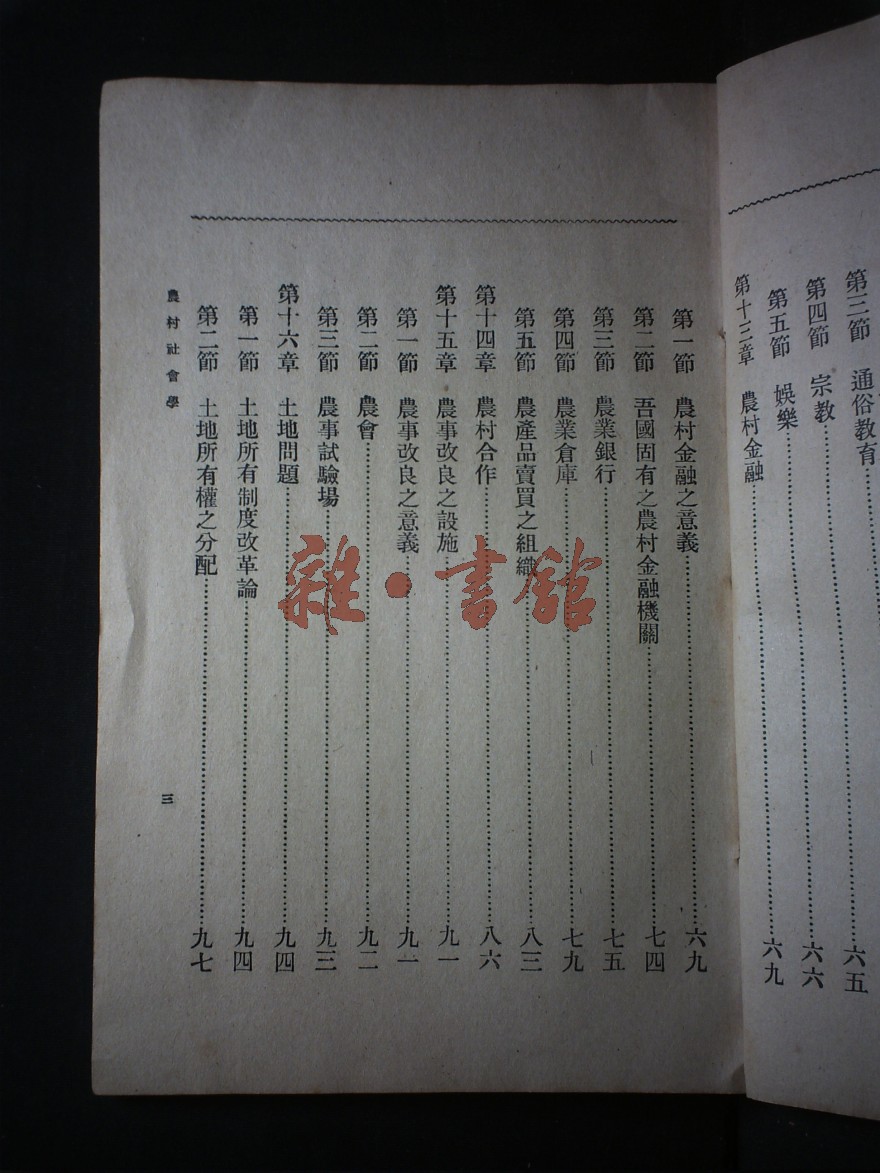 第三節　通俗教育……六五
第四節　宗教……六六
第五節　娛樂……六九
第十三章　農村金融
第一節　農村金融之意義……六九
第二節　吾國固有之農村金融機關……七四
第三節　農業銀行……七五
第四節　農業倉庫……七九
第五節　農產品賣買之組織……八三
第十四章　農村合作……八六
第十五章　農事改良之設施……九一
第一節　農事改良之意義……九一
第二節　農會……九二
第三節　農事試驗場……九三
第十六章　土地問題……九四
第一節　土地所有制度改革論……九四
第二節　土地所有權之分配……九七
農村社會學
三
雜·書館